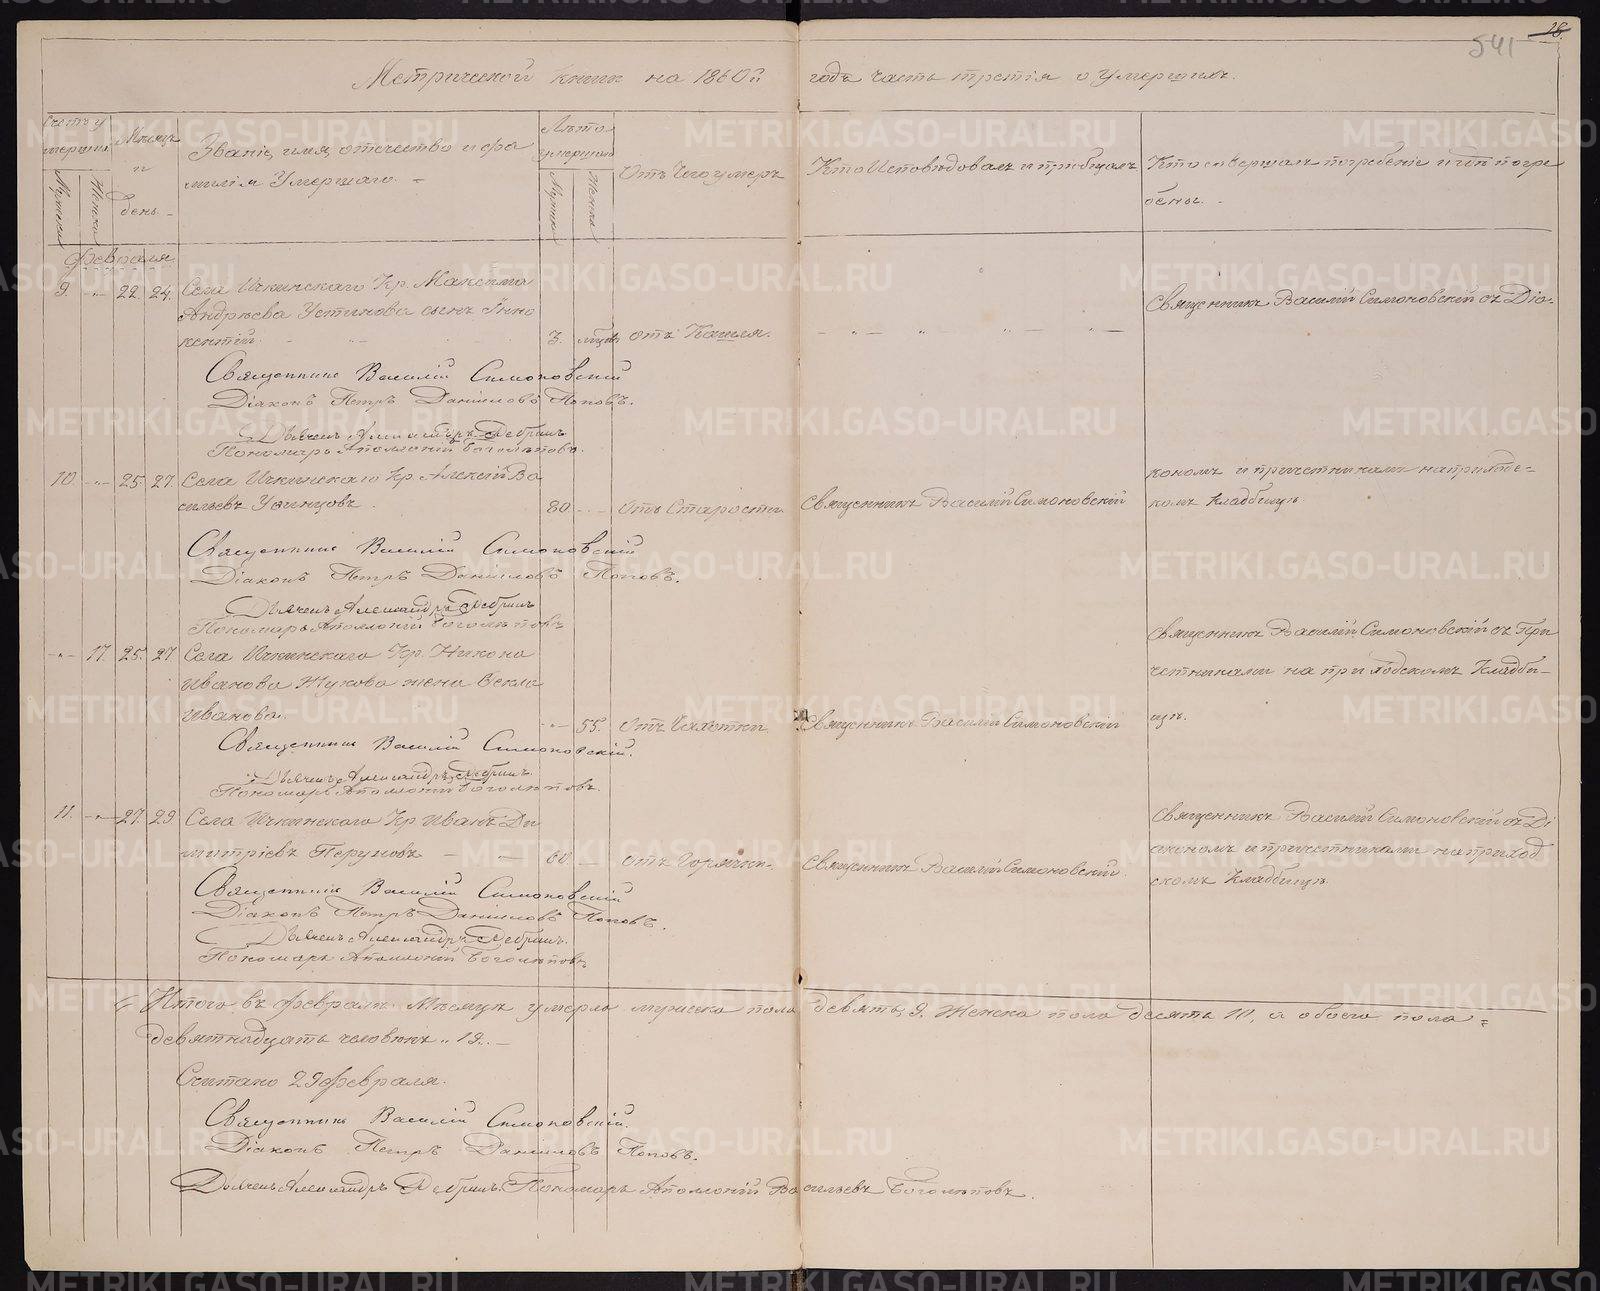 541
28.
Метрической книги на 1860й годъ часть третія о умершихъ.
Счетъ у
мершихъ
Мужска
Женска
Мѣсяцъ
и
день.
Званіе, имя, отчество и фа
милія Умершаго. -
Лѣто
умершаго
Мужска
Женска
Отъ Чего умеръ
Кто Исповѣдовалъ и пріобщалъ
Кто совершалъ погребеніе и гдѣ погре
бены. -
Февраля
9. -"- 22. 24. Села Ичкинскаго Кр. Максима
Андрѣева Устинова сынъ Инно
кентій. 3. мѣся отъ Кашля.
Священникъ Василій Симоновскій съ Діа-
Священникъ Василій Симоновскій
Діаконъ Петръ Даніиловъ Поповъ.
Дьячекъ Александръ Дебринъ
Пономарь Аполлоній Боголѣповъ.
10. -"- 25. 27. Села Ичкинскаго Кр. Алексій Ва
сильевъ Усинцовъ. 80 - Отъ Старости Священникъ Василій Симоновскій
кономъ и причетниками на приходс=
комъ Кладбищѣ
Священникъ Василій Симоновскій
Діаконъ Петръ Даніиловъ Поповъ.
Дьячекъ Александръ Дебринъ
Пономарь Аполлоній Боголѣповъ
-"- 17. 25. 27 Села Ичкинскаго Кр. Никона
Иванова Жукова жена Векла
Иванова. -"- 55. Отъ Чахотки Священникъ Василій Симоновскій
Священникъ Василій Симоновскій съ При
четниками на приходскомъ Кладби-
щѣ.
Священникъ Василій Симоновскій.
Дьячекъ Александръ Дебринъ.
Пономарь Аполлоній Боголѣповъ.
11. -"- 27. 29 Села Ичкинскаго Кр Иванъ Ди
митріевъ Перуновъ - - 60 - Отъ Горячки. Священникъ Василій Симоновскій.
Священникъ Василій Симоновскій съ Ді
акономъ и причетниками на приход
скомъ Кладбищѣ.
Священникъ Василій Симоновскій
Діаконъ Петръ Даніиловъ Поповъ.
Дьячекъ Александръ Дебринъ.
Пономарь Аполлоній Боголѣповъ
Итого въ Февралѣ Мѣсяцѣ умерло мужска пола девять, 9. Женска пола десять 10, а обоего пола =
девятнадцать человѣкъ „ 19. -
Считано 29 февраля.
Священникъ Василій Симоновскій.
Діаконъ Петръ Даніиловъ Поповъ.
Дьячекъ Александръ Дебринъ. Пономарь Аполлоній Васильевъ Боголѣповъ.
METRIKI.GASO-URAL.RU